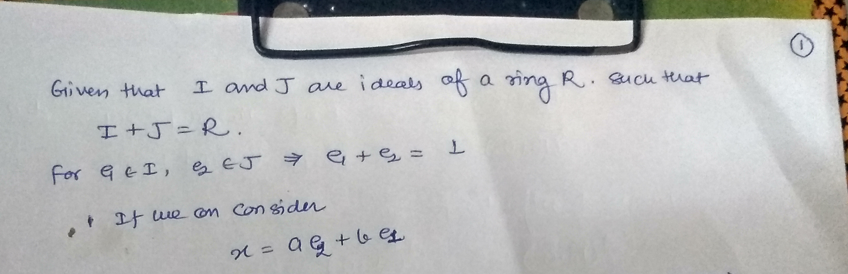 ①
Given that I and J are ideals of a ring R. Such that
I + J = R.
For e₁ ∈ I, e₂ ∈ J ⇒ e₁ + e₂ = 1
If we can consider
x = a e₂ + b e₁